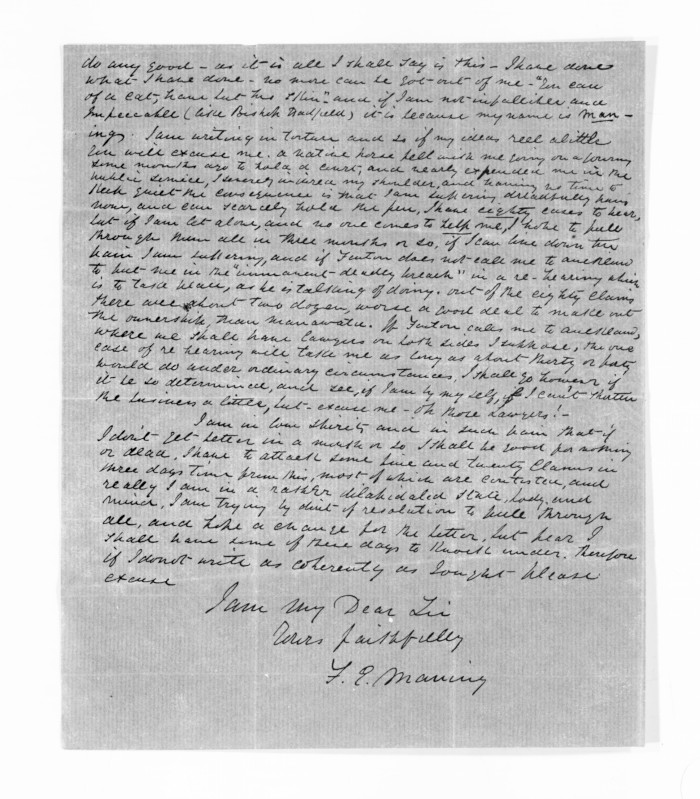 do any good – as it is all I shall say is this – I have done
what I have done – no more can be got out of me – "You can
of a cat, have but his skin" and if I am not infallible and
Impeccable (like Bishop Hadfield) it is because my name is Man –
ing. I am writing in torture and so if my ideas reel a little
you will excuse me. a native horse fell with me going on a journey
some months ago to hold a court, and nearly expended me in the
public service, I severely injured my shoulder, and having no time to
keep quiet the consequence is that I am suffering dreadfully
now, and can scarcely hold the pen, I have eighty cases to hear,
but if I am let alone, and no one comes to help me, I hope to pull
through them all in three months or so, if I can live down the
pain I am suffering, and if Fenton does not call me to auckland
to put me in the "imminent deadly breach" in a re-hearing which
is to take place, as he is talking of doing. out of the eighty claims
there are about two dozen, worse a good deal to make out
the ownership, than manawatu. If Fenton calls me to auckland,
where we shall have lawyers on both sides I suppose, the one
case of re hearing will take me as long as about thirty or forty
would do under ordinary circumstances. I shall go however, if
it be so determined, and see, if I am by myself, if I can't shorten
the business a little, but – excuse me – oh those Lawyers! –
I am in low spirits and in such pain that if
I don't get better in a month or so I shall be good for nothing
or dead. I have to attack some five and twenty claims in
three days time from this, most of which are contested, and
really I am in a rather dilapidated state, body, and
mind, I am trying by dint of resolution to pull through
all, and hope a change for the better, but fear I
shall have some of these days to knock under. Therefore
if I do not write as coherently as I ought please
excuse
I am My Dear Sir
Yours faithfully
F. E. Maning